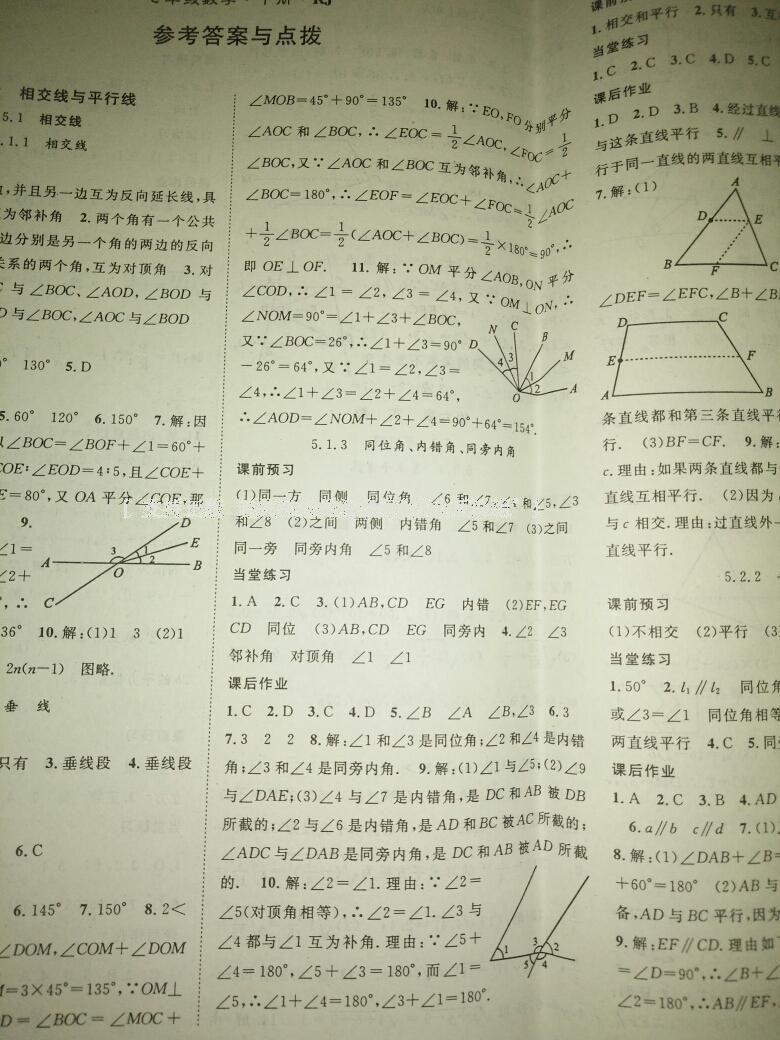 参考答案与点拨
相交线与平行线
5.1 相交线
.1.1 相交线
,并且另一边互为反向延长线,具
为邻补角 2.两个角有一个公共
边分别是另一个角的两边的反向
关系的两个角,互为对顶角 3.对
与∠BOC、∠AOD,∠BOD 与
D与∠BOC,∠AOC与∠BOD
130° 5.D
5.60° 120° 6.150° 7.解:因
∠BOC=∠BOF+∠1=60°+
COE:∠EOD=4:5,且∠COE+
E=80°,又OA平分∠COE,那
9.
∠1=
∠2+
,∴
D
E
A
3
1
2
O
B
C
36° 10.解:(1)1 3 (2)1
2n(n-1) 图略.
垂 线
只有 3.垂线段 4.垂线段
6.C
6.145° 7.150° 8.2<
∠DOM,∠COM+∠DOM
M=3×45°=135°,∵OM⊥
D=∠BOC=∠MOC+
∠MOB=45°+90°=135° 10.解:∵EO,FO分别平分
∠AOC和∠BOC,∴∠EOC=1/2∠AOC,∠FOC=1/2
∠BOC,又∵∠AOC和∠BOC互为邻补角,∴∠AOC+
∠BOC=180°,∴∠EOF=∠EOC+∠FOC=1/2∠AOC
+1/2∠BOC=1/2(∠AOC+∠BOC)=1/2×180°=90°,∴
即OE⊥OF. 11.解:∵OM平分∠AOB,ON平分
∠COD,∴∠1=∠2,∠3=∠4,又∵OM⊥ON,∴
∠NOM=90°=∠1+∠3+∠BOC,
又∵∠BOC=26°,∴∠1+∠3=90°
-26°=64°,又∵∠1=∠2,∠3=
∠4,∴∠1+∠3=∠2+∠4=64°,
∴∠AOD=∠NOM+∠2+∠4=90°+64°=154°.
N
C
B
D
M
4
3
1
2
O
A
5.1.3 同位角、内错角、同旁内角
课前预习
(1)同一方 同侧 同位角 ∠6和∠7,∠3
和∠8 (2)之间 两侧 内错角 ∠5和∠7 (3)之间
同一旁 同旁内角 ∠5和∠8
当堂练习
1.A 2.C 3.(1)AB,CD EG 内错 (2)EF,EG
CD 同位 (3)AB,CD EG 同旁内 4.∠2 ∠3
邻补角 对顶角 ∠1 ∠1
课后作业
1.C 2.D 3.C 4.D 5.∠B ∠A ∠B,∠3 6.3
7.3 2 2 8.解:∠1和∠3是同位角;∠2和∠4是内错
角;∠3和∠4是同旁内角. 9.解:(1)∠1与∠5;(2)∠9
与∠DAE;(3)∠4与∠7是内错角,是DC和AB被DB
所截的;∠2与∠6是内错角,是AD和BC被AC所截的;
∠ADC与∠DAB是同旁内角,是DC和AB被AD所截
的. 10.解:∠2=∠1.理由:∵∠2=
∠5(对顶角相等),∴∠2=∠1.∠3与
∠4都与∠1互为补角.理由:∵∠5+
∠4=180°,∠5+∠3=180°,而∠1=
∠5,∴∠1+∠4=180°,∠3+∠1=180°.
1
3
2
5
4
课前
1.相交和平行 2.只有 3.互
当堂练习
1.C 2.C 3.C 4.D 5.C
课后作业
1.D 2.D 3.B 4.经过直线
与这条直线平行 5.∥ ⊥
行于同一直线的两直线互相平
7.解:(1)
A
D
E
B
F
C
∠DEF=∠EFC,∠B+∠B
D
C
E
F
A
B
条直线都和第三条直线平
行. (3)BF=CF. 9.解:
c.理由:如果两条直线都与
直线互相平行. (2)因为
与c相交.理由:过直线外一
直线平行.
5.2.2
课前预习
(1)不相交 (2)平行 (3)
当堂练习
1.50° 2.l₁∥l₂ 同位角
或∠3=∠1 同位角相等
两直线平行 4.C 5.同
课后作业
1.A 2.C 3.B 4.AD
6.a∥b c∥d 7.(1)
8.解:(1)∠DAB+∠B=
+60°=180° (2)AB与
备,AD与BC平行,因为
9.解:EF∥CD.理由如
=∠D=90°,∴∠B+∠
∠2=180°,∴AB∥EF,